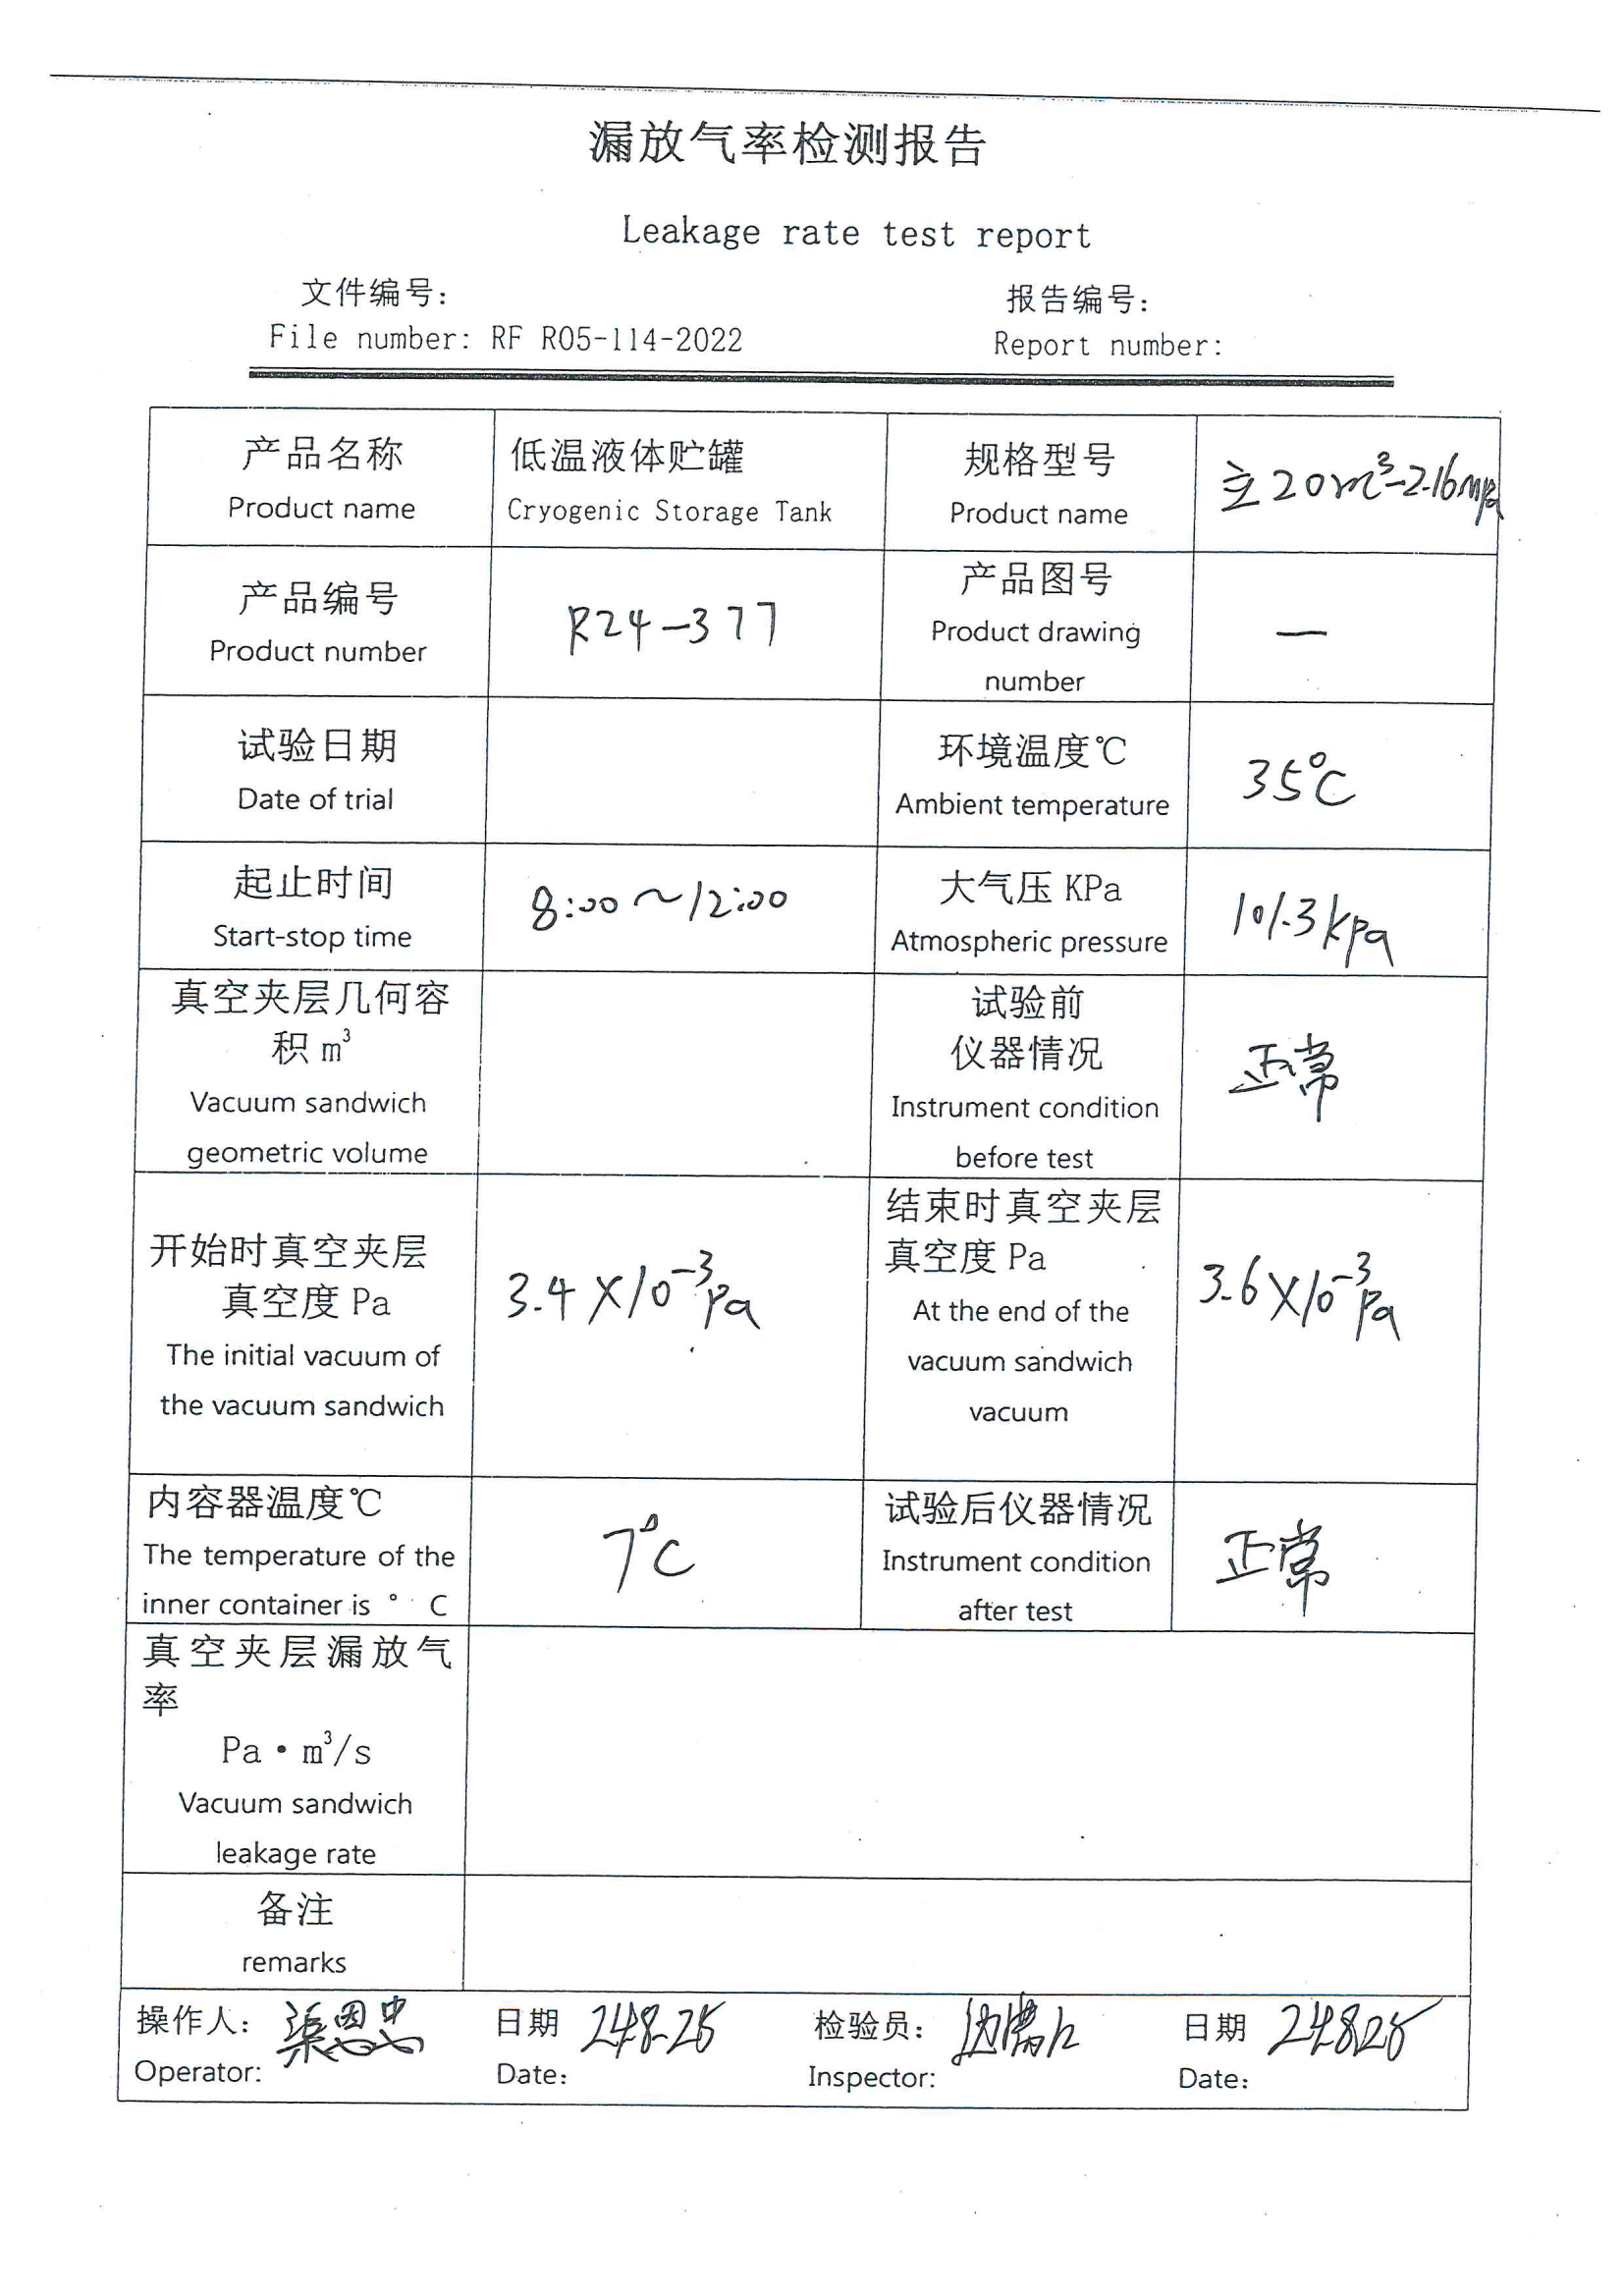 漏放气率检测报告
Leakage rate test report
文件编号:
报告编号:
File number: RF R05-114-2022
Report number:
产品名称
Product name
低温液体贮罐
Cryogenic Storage Tank
规格型号
Product name
立20m³-2.16mpa
产品编号
Product number
R24-377
产品图号
Product drawing
number
—
试验日期
Date of trial
环境温度℃
Ambient temperature
35℃
起止时间
Start-stop time
8:00~12:00
大气压 KPa
Atmospheric pressure
101.3kpa
真空夹层几何容
积 m³
Vacuum sandwich
geometric volume
试验前
仪器情况
Instrument condition
before test
正常
开始时真空夹层
真空度 Pa
The initial vacuum of
the vacuum sandwich
3.4×10⁻³Pa
结束时真空夹层
真空度 Pa
At the end of the
vacuum sandwich
vacuum
3.6×10⁻³Pa
内容器温度℃
The temperature of the
inner container is ° C
7℃
试验后仪器情况
Instrument condition
after test
正常
真空夹层漏放气
率
Pa·m³/s
Vacuum sandwich
leakage rate
备注
remarks
操作人:
日期 24.8.25
检验员:
日期 24.8.25
Operator:
Date:
Inspector:
Date: